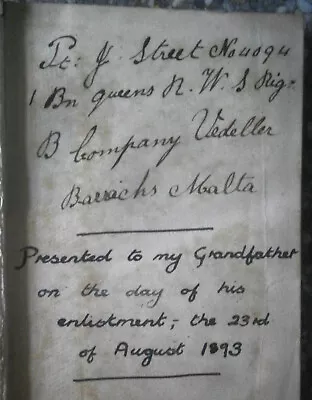 Pt: J Street No 4094
1 Bn queens R. W. S Rig.
B Company Vedeller
Barrichs Malta
Presented to my Grandfather
on the day of his
enlistment, - the 23rd
of August 1893